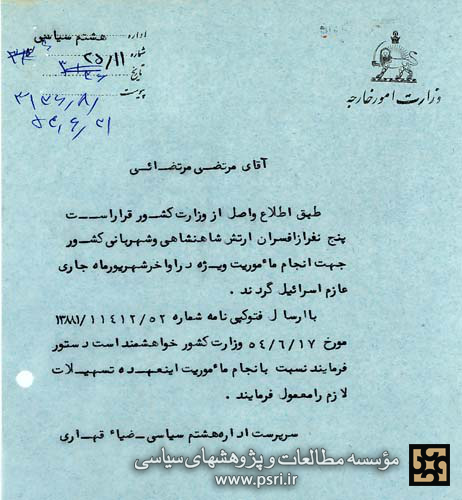 وزارت امور خارجه
اداره هشتم سیاسی
شماره ۲۵/۱۱
تاریخ
پیوست
۳۱۳۶/۸/
۵۴/۶/۲۱
آقای مرتضی مرتضائی
طبق اطلاع واصل از وزارت کشور قرار است
پنج نفر از افسران ارتش شاهنشاهی و شهربانی کشور
جهت انجام مأموریت ویژه در اواخر شهریور ماه جاری
عازم اسرائیل گردند .
با ارسال فتوکپی نامه شماره ۱۳۸۸۱/۱۱۴۱۲/۵۲
مورخ ۵۴/۶/۱۷ وزارت کشور خواهشمند است دستور
فرمایند نسبت بانجام مأموریت اینعهده تسهیلات
لازم را معمول فرمایند .
سرپرست اداره هشتم سیاسی - ضیاء قهاری
مؤسسه مطالعات و پژوهشهای سیاسی
www.psri.ir